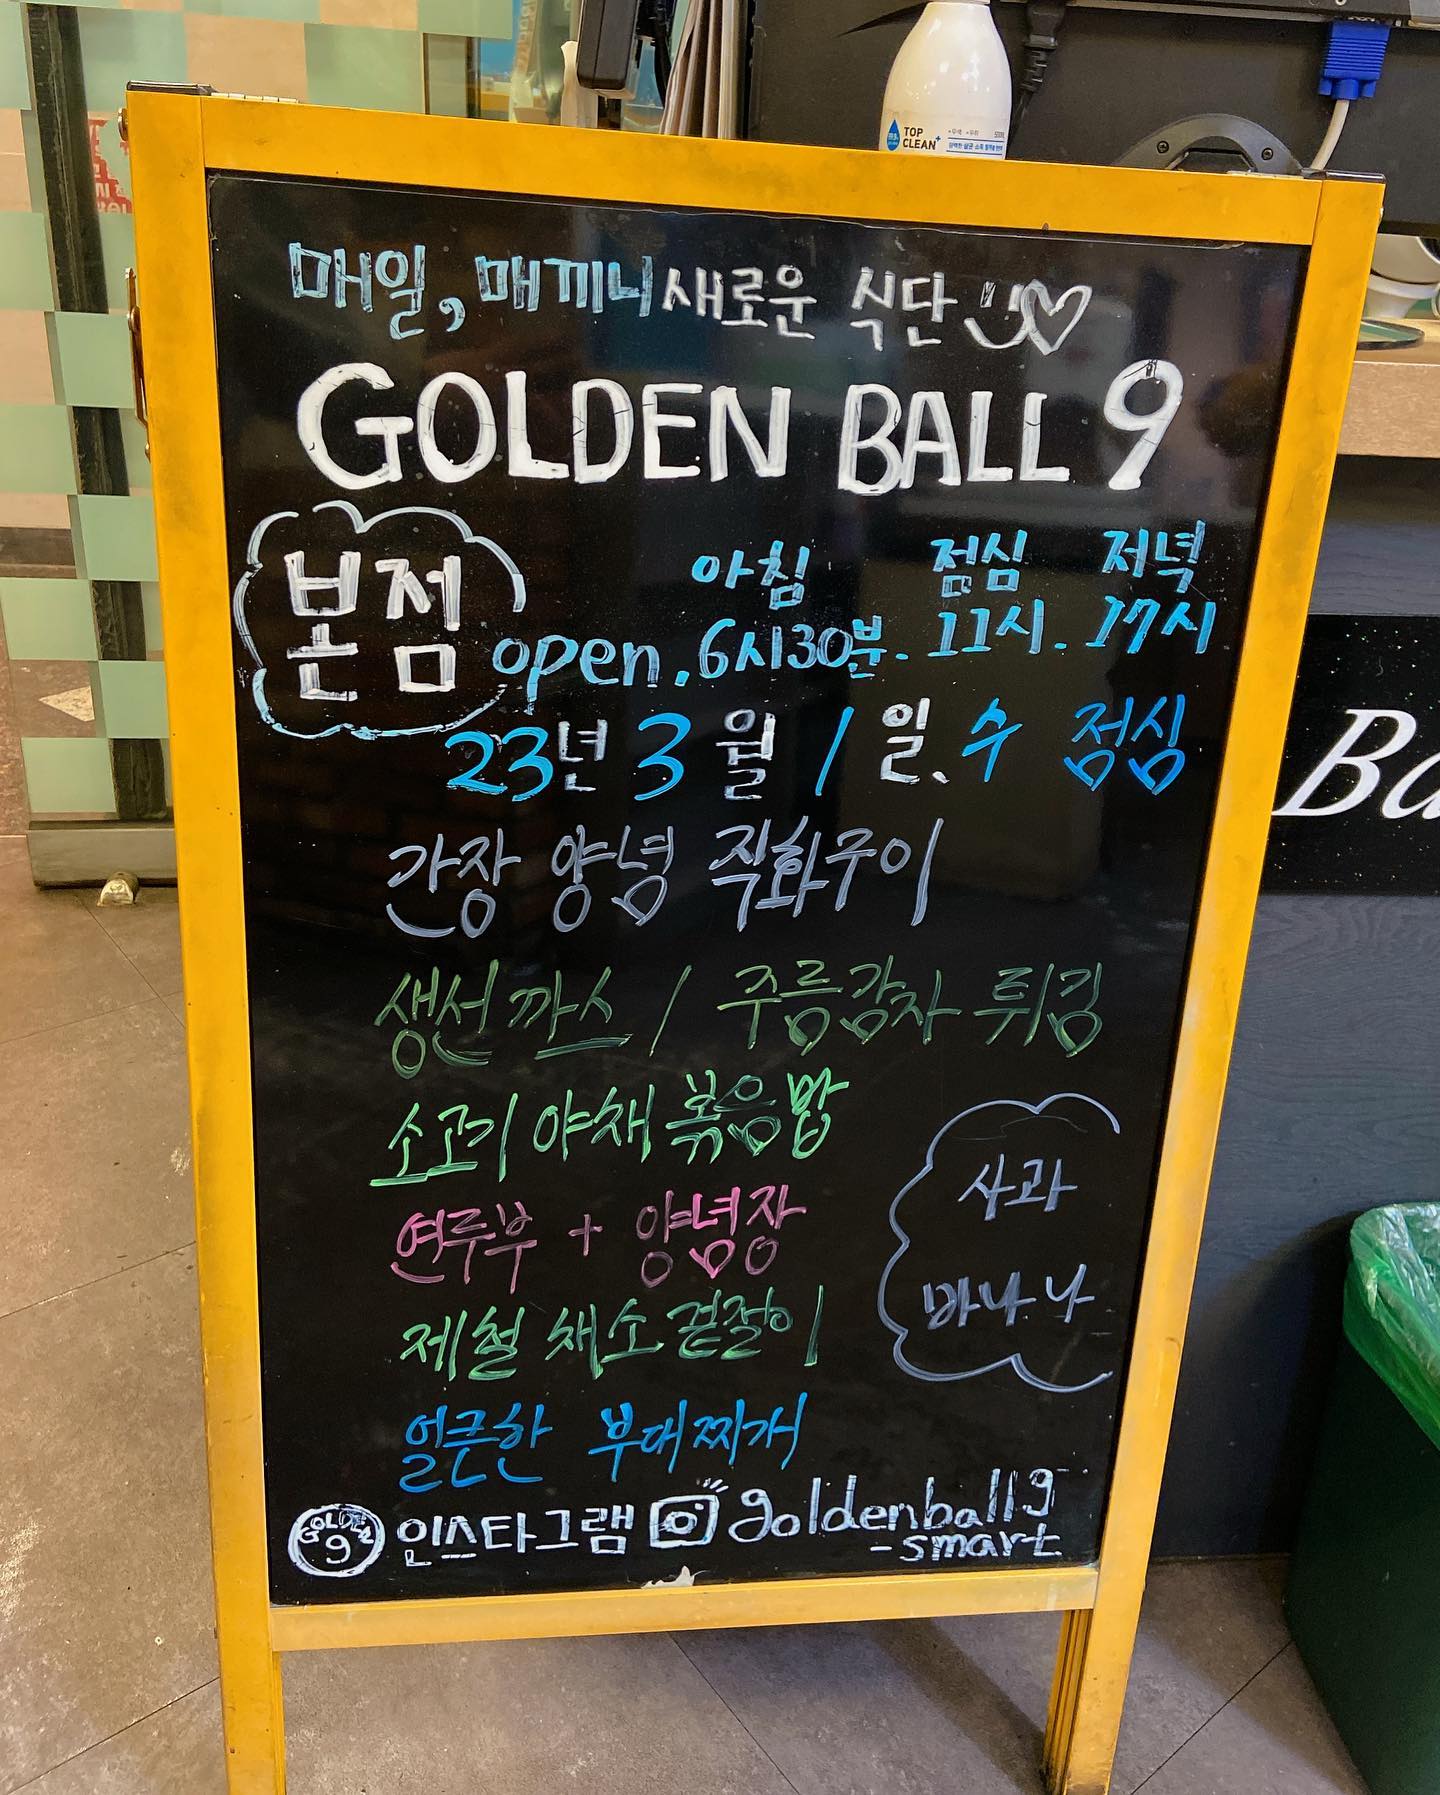 TOP
CLEAN+
매일, 매끼니 새로운 식단
GOLDEN BALL 9
본점
아침 점심 저녁
open. 6시30분. 11시. 17시
23년 3월 1일. 수 점심
간장 양념 직화구이
생선까스 / 주름감자 튀김
소고기 야채 볶음밥
연두부 + 양념장
제철 채소 겉절이
얼큰한 부대찌개
사과
바나나
GOLDEN 9 인스타그램 goldenball9
-smart
Ba